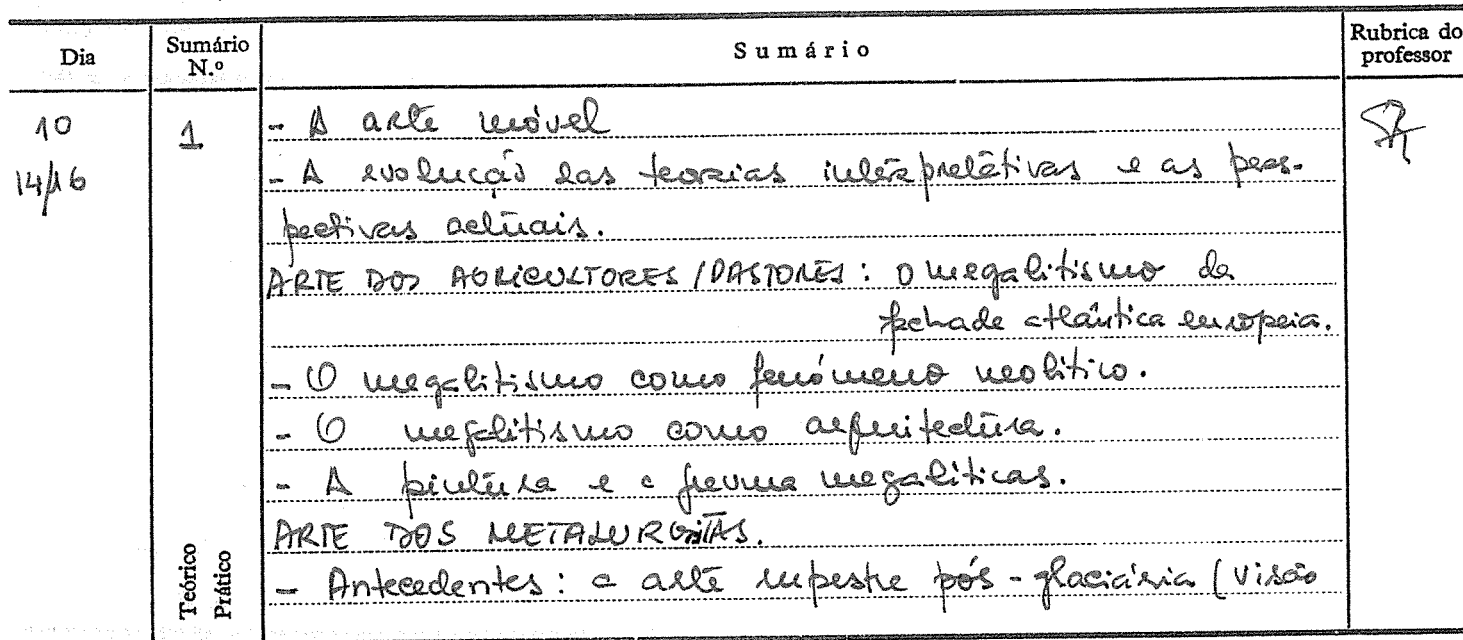 Dia
Sumário N.º
Sumário
Rubrica do professor
10
14/16
1
- A arte móvel
- A evolução das teorias interpretativas e as pers-
pectivas actuais.
ARTE DOS AGRICULTORES / PASTORES: O megalitismo da
fachada atlântica europeia.
- O megalitismo como fenómeno neolítico.
- O megalitismo como arquitectura.
- A pintura e a gravura megalíticas.
ARTE DOS METALURGISTAS.
- Antecedentes: a arte rupestre pós-glaciária (visão
Teórico
Prático